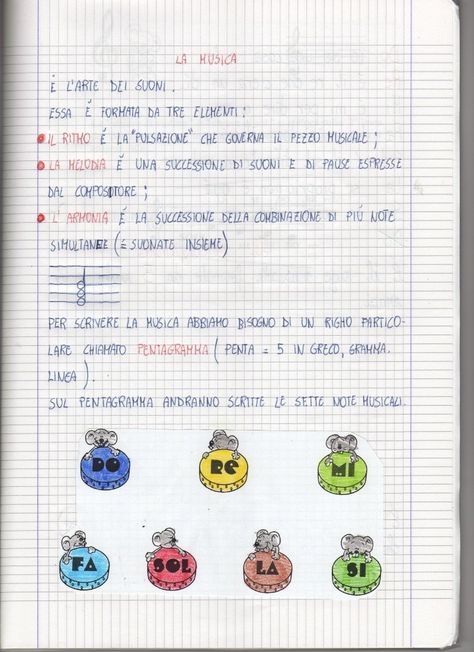 LA MUSICA
È L'ARTE DEI SUONI.
ESSA È FORMATA DA TRE ELEMENTI:
IL RITMO È LA "PULSAZIONE" CHE GOVERNA IL PEZZO MUSICALE;
LA MELODIA È UNA SUCCESSIONE DI SUONI E DI PAUSE ESPRESSE
DAL COMPOSITORE;
L'ARMONIA È LA SUCCESSIONE DELLA COMBINAZIONE DI PIÙ NOTE
SIMULTANEE (= SUONATE INSIEME)
PER SCRIVERE LA MUSICA ABBIAMO BISOGNO DI UN RIGHO PARTICO-
LARE CHIAMATO PENTAGRAMMA (PENTA = 5 IN GRECO, GRAMMA.
LINEA).
SUL PENTAGRAMMA ANDRANNO SCRITTE LE SETTE NOTE MUSICALI.
DO RE MI
FA SOL LA SI